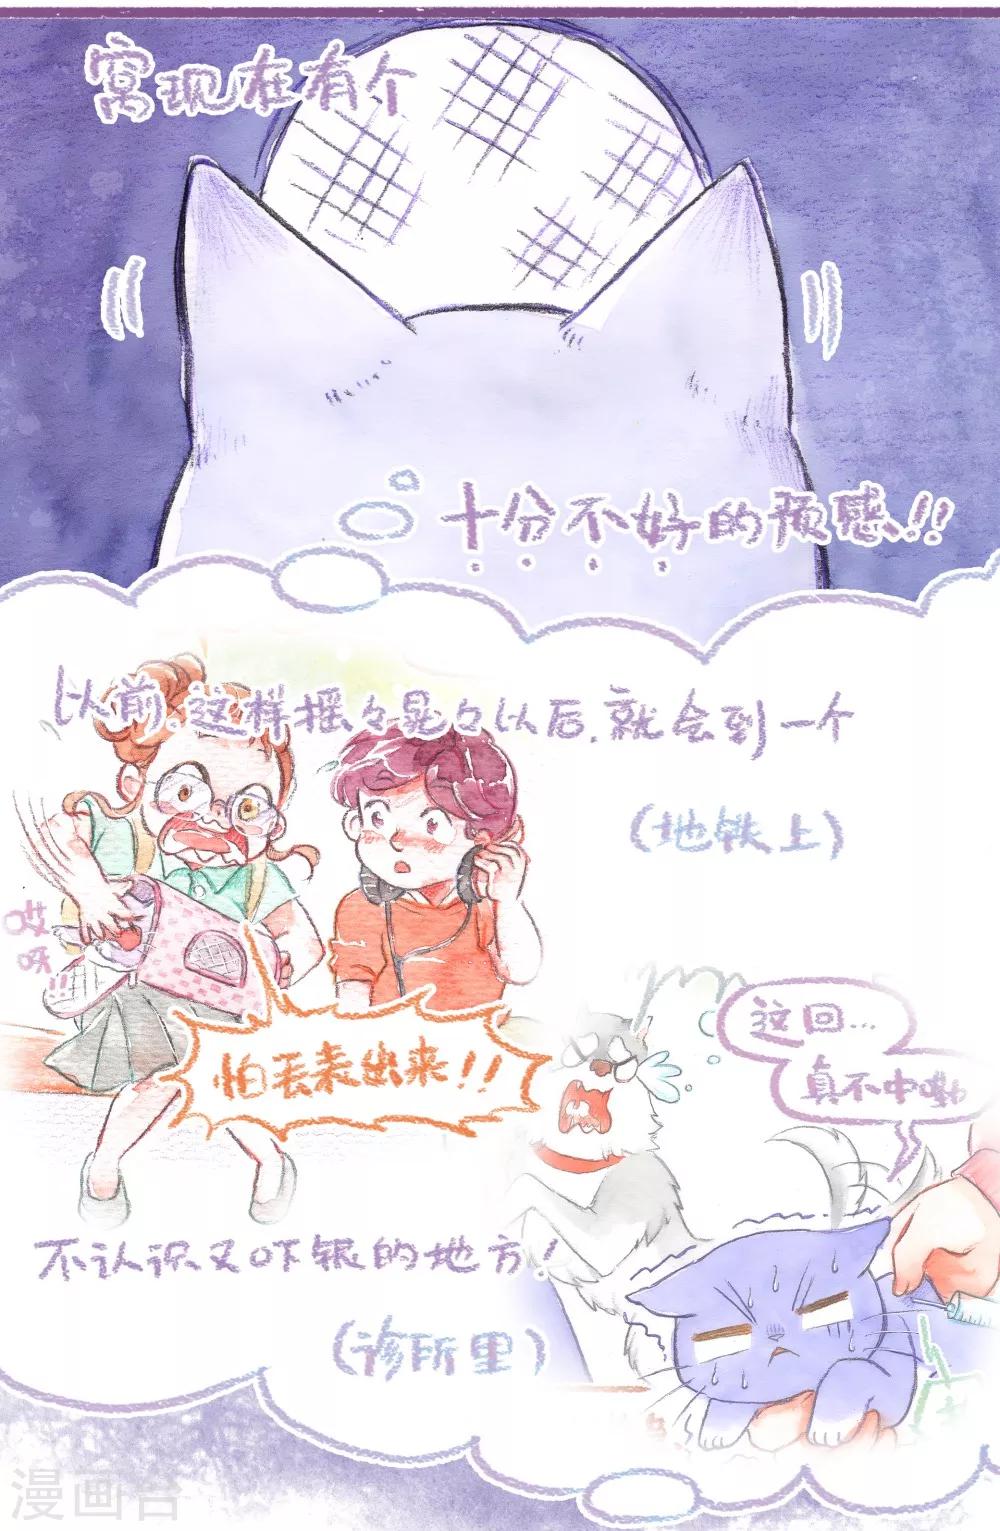 窝现在有个
十分不好的预感!!
以前,这样摇々晃々以后,就会到一个
(地铁上)
哎呀!!
怕丢来出来!!
这回…
真不中嘞
不认识又吓银的地方!
(诊所里)
漫画台